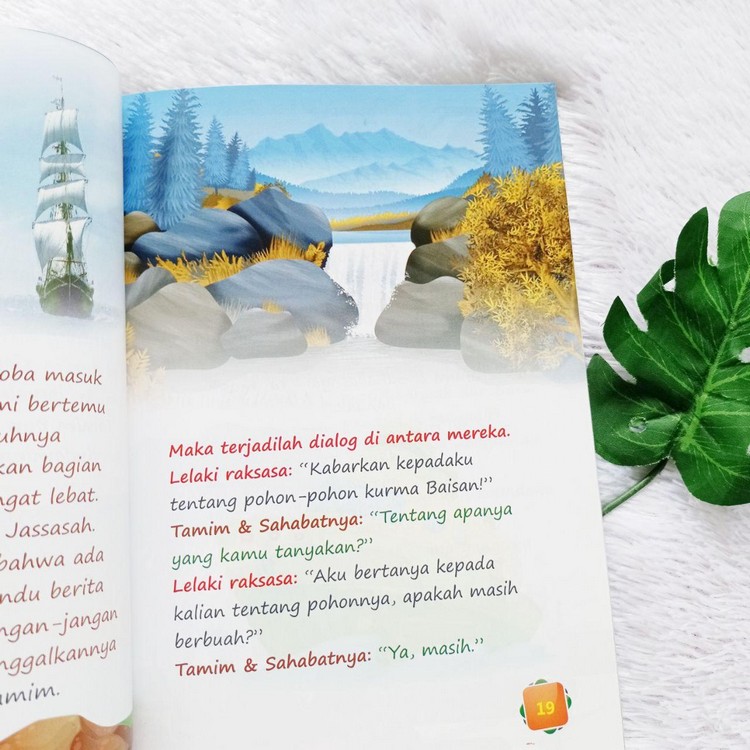 masuk
bertemu
bagian
lebat.
Jassasah.
bahwa ada
berita
Maka terjadilah dialog di antara mereka.
Lelaki raksasa: “Kabarkan kepadaku
tentang pohon-pohon kurma Baisan!”
Tamim & Sahabatnya: “Tentang apanya
yang kamu tanyakan?”
Lelaki raksasa: “Aku bertanya kepada
kalian tentang pohonnya, apakah masih
berbuah?”
Tamim & Sahabatnya: “Ya, masih.”
19